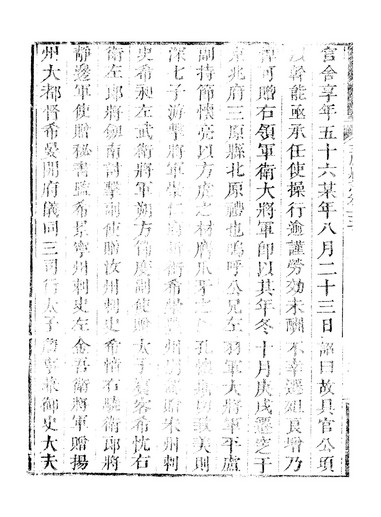 官舍享年五十六某年八月二十三日詔曰故具官公頃
幹能亟承任使操行逾謹勞効未酬不幸遷殂良增乃
可贈右領軍衛大將軍即以其年冬十月庚戌遷窆于
京兆府三原縣北原禮也嗚呼公兄左羽軍大將軍平盧
副持節懷亮以方虎之材膺爪牙之美則
深七子游擊將軍州刺
史希昶左武衛將軍朔方節度副使贈太子賓客希忱右
衛左郎將劍南討擊副使贈汝州刺史希情右驍衛郎將
靜邊軍使贈祕書監希景寧州刺史左金吾衛將軍贈揚
州大都督希晏開府儀同三司行太子御史大夫